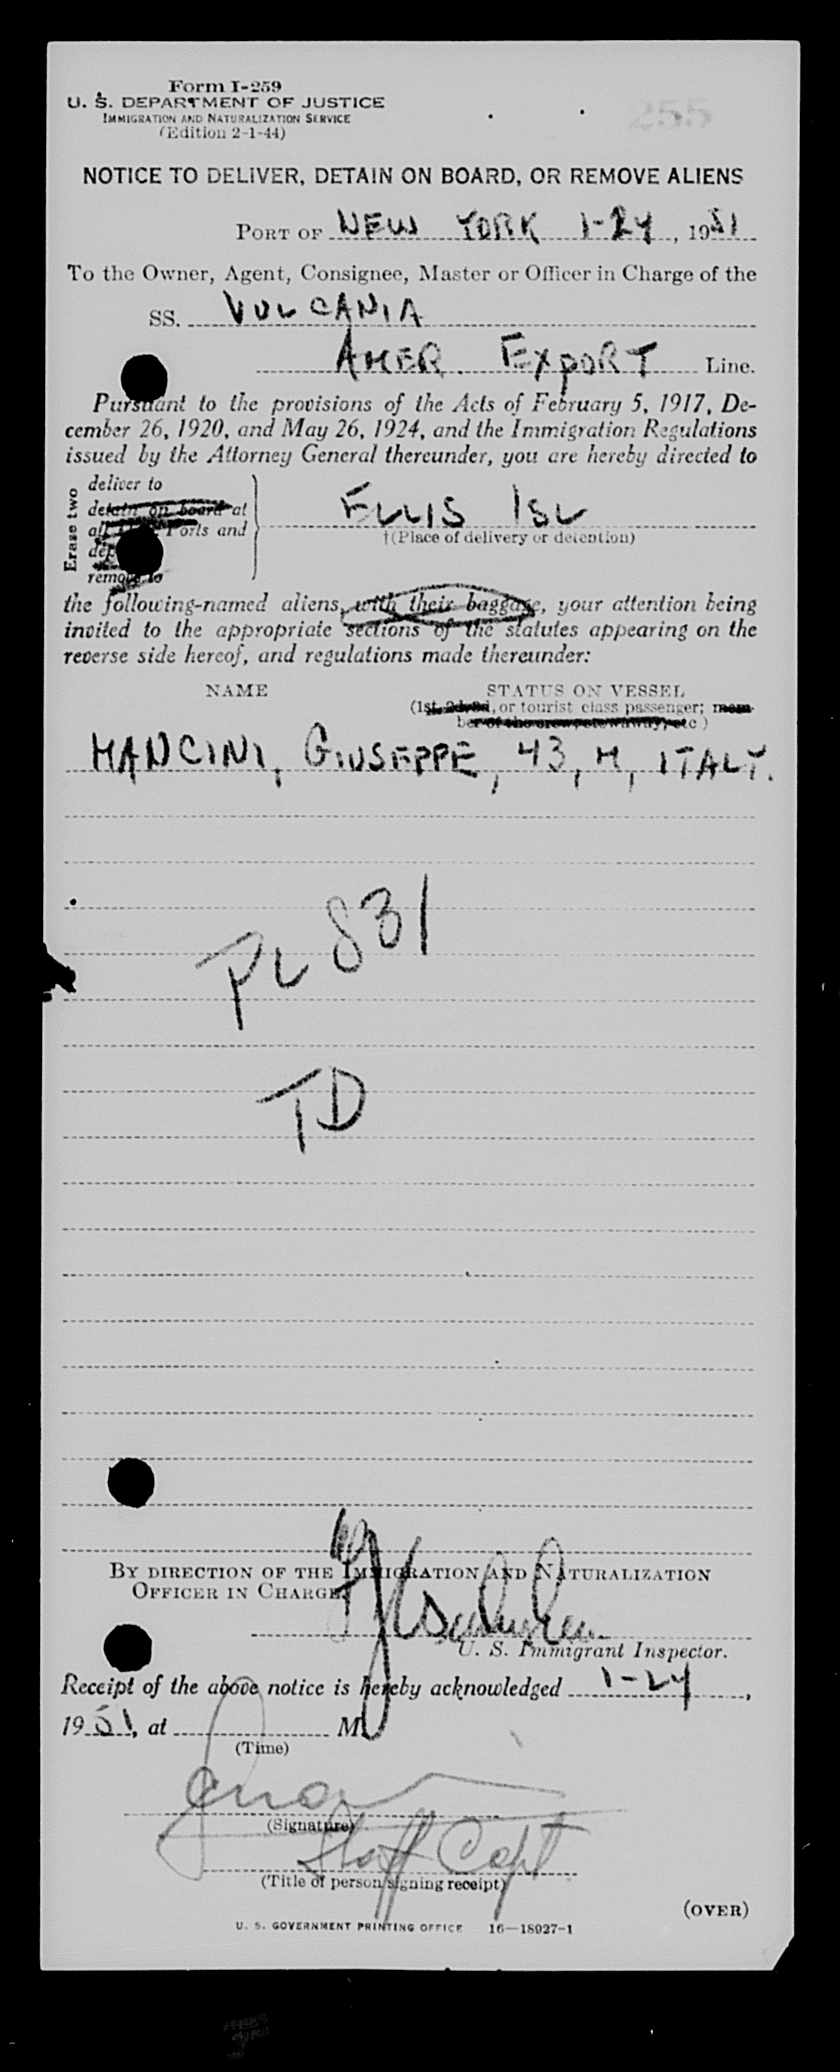 Form I-259
U. S. DEPARTMENT OF JUSTICE
IMMIGRATION AND NATURALIZATION SERVICE
(Edition 2-1-44)
255
NOTICE TO DELIVER, DETAIN ON BOARD, OR REMOVE ALIENS
PORT OF NEW YORK 1-24, 1951
To the Owner, Agent, Consignee, Master or Officer in Charge of the
SS. VULCANIA
AMER. EXPORT Line.
Pursuant to the provisions of the Acts of February 5, 1917, De-
cember 26, 1920, and May 26, 1924, and the Immigration Regulations
issued by the Attorney General thereunder, you are hereby directed to
Erase two
deliver to
detain on board at
all Ports and
remove to
ELLIS ISL
†(Place of delivery or detention)
the following-named aliens, with their baggage, your attention being
invited to the appropriate sections of the statutes appearing on the
reverse side hereof, and regulations made thereunder:
NAME STATUS ON VESSEL
(1st, 2d, 3d, or tourist class passenger; mem-
ber of the crew, stowaway, etc.)
MANCINI, GIUSEPPE, 43, M, ITALY.
PL 831
TD
BY DIRECTION OF THE IMMIGRATION AND NATURALIZATION
OFFICER IN CHARGE
U. S. Immigrant Inspector.
Receipt of the above notice is hereby acknowledged 1-24,
1951, at M
(Time)
(Signature)
Staff Capt.
(Title of person signing receipt)
(OVER)
U. S. GOVERNMENT PRINTING OFFICE 16—18927-1